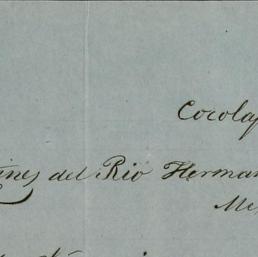 Cocolap
ines del Rio Herman
Me